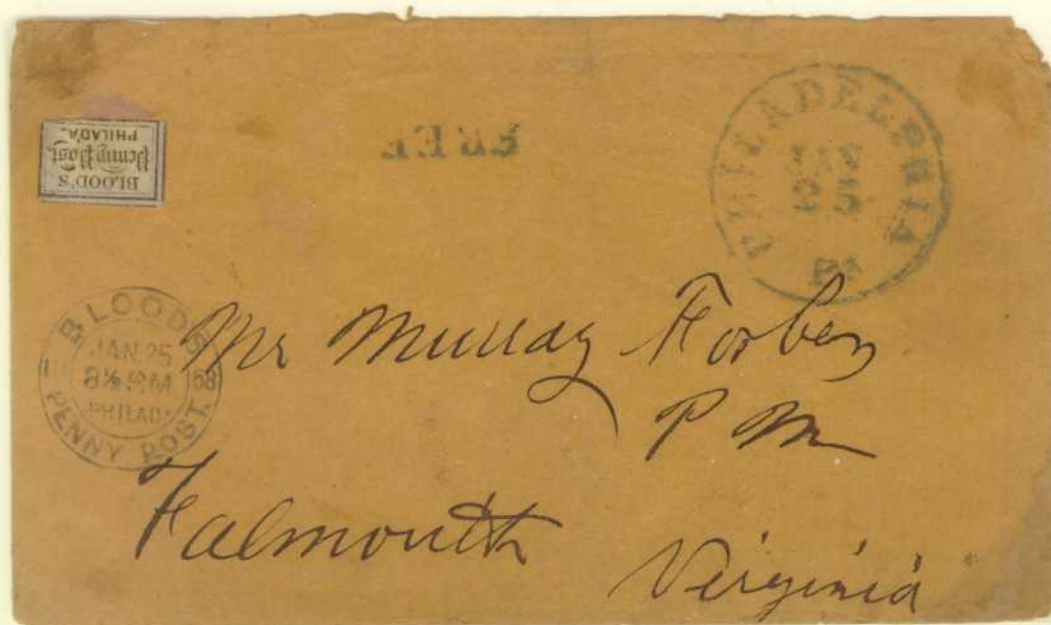 BLOOD'S
Penny Post
PHILAD'A.
FREE
PHILADELPHIA
JAN
25
Pa
BLOOD'S
JAN. 25
8½ P.M
PHILADA
PENNY POST.
58
Mr Murray Forbes
P M
Falmouth
Virginia